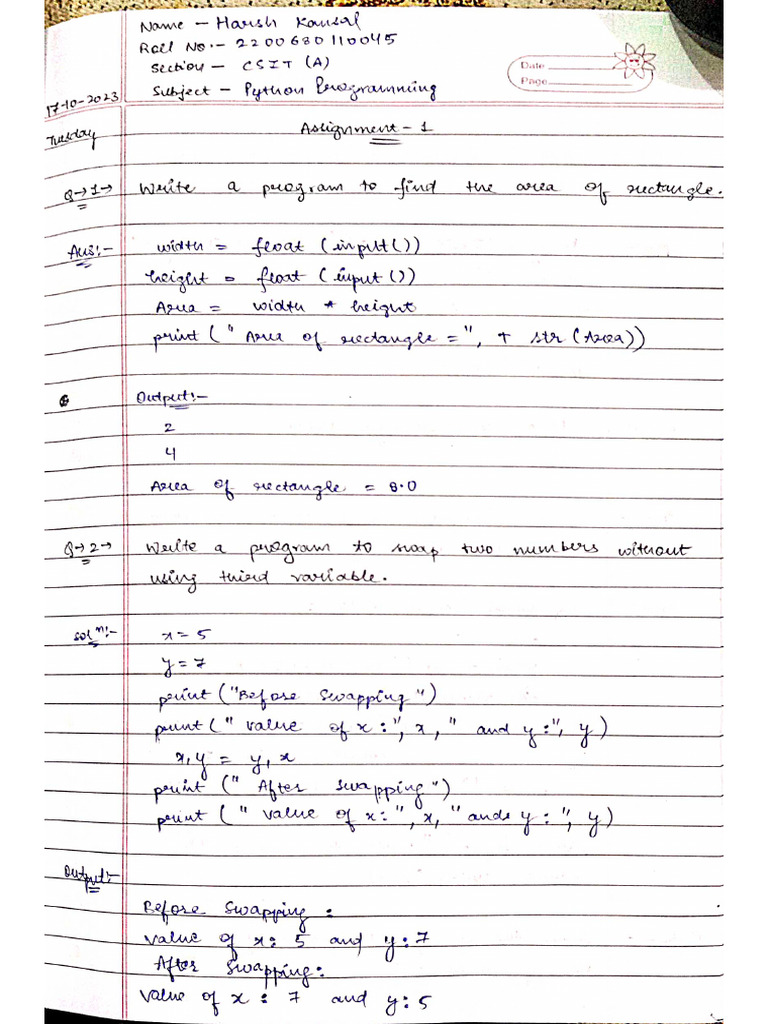 Name - Harsh Kansal
Roll No:- 2200680110045
Section - CSIT (A)
Subject - Python Programming
Date
Page
17-10-2023
Tuesday
Assignment - 1
Q→1→ Write a program to find the area of rectangle.
Ans:- width = float (input())
height = float (input ())
Area = width * height
print (" Area of rectangle =", + str (Area))
Output:-
2
4
Area of rectangle = 8.0
Q→2→ Write a program to swap two numbers without
using third variable.
solⁿ:- x = 5
y = 7
print ("Before swapping ")
print (" value of x :", x, " and y :", y )
x, y = y, x
print (" After swapping ")
print (" value of x : ", x, " and y : ", y)
Output:-
Before swapping :
value of x : 5 and y : 7
After swapping :
value of x : 7 and y : 5